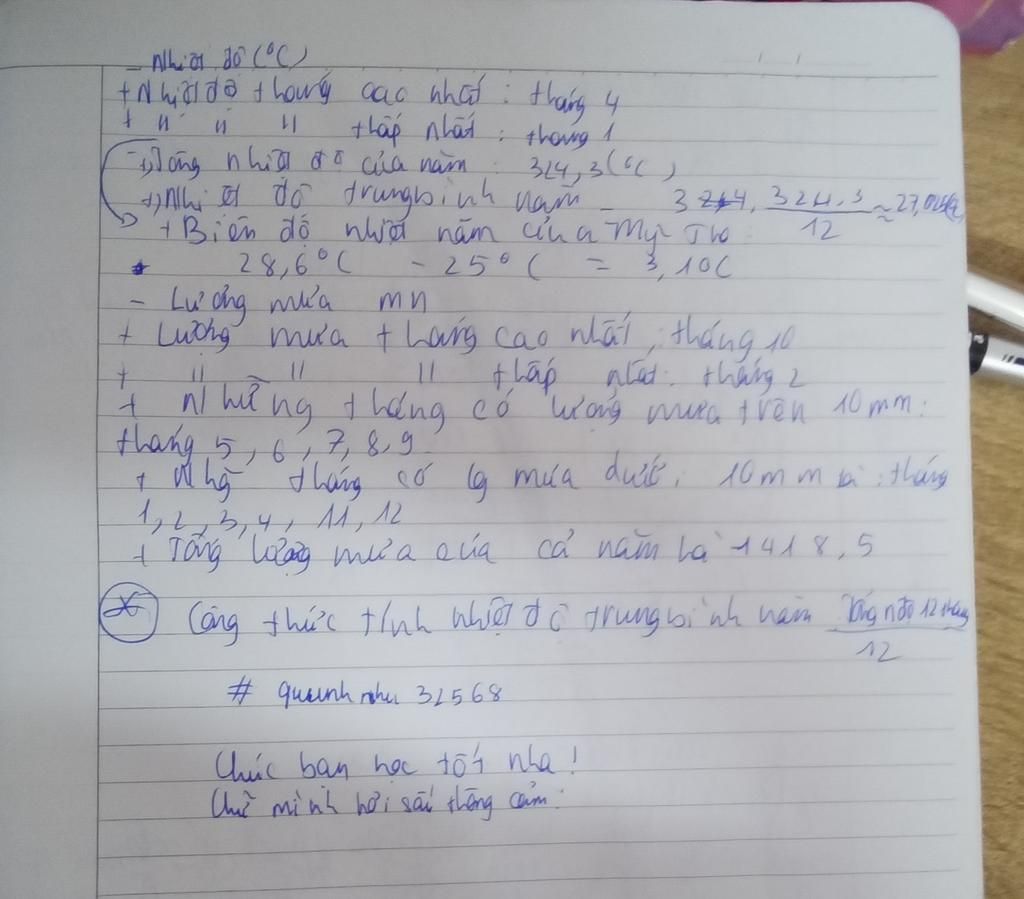 - Nhiệt độ (°C)
+ Nhiệt độ tháng cao nhất : tháng 4
+ " " " thấp nhất : tháng 1
+) Tổng nhiệt độ của năm : 324,3 (°C)
+) Nhiệt độ trung bình năm 324,3 / 12 ≈ 27,025
+ Biên độ nhiệt năm của Mỹ Tho :
28,6°C - 25°C = 3,1°C
- Lượng mưa mm
+ Lượng mưa tháng cao nhất : tháng 10
+ " " " thấp nhất : tháng 2
+ Những tháng có lượng mưa trên 10mm :
tháng 5, 6, 7, 8, 9
+ Nhg tháng có lg mưa dưới 10mm là : tháng
1, 2, 3, 4, 11, 12
+ Tổng lượng mưa của cả năm là 1418,5
* Công thức tính nhiệt độ trung bình năm Tổng n độ 12 tháng / 12
# quynh nhu 32568
Chúc bạn học tốt nha !
Chữ mình hơi xấu thông cảm :